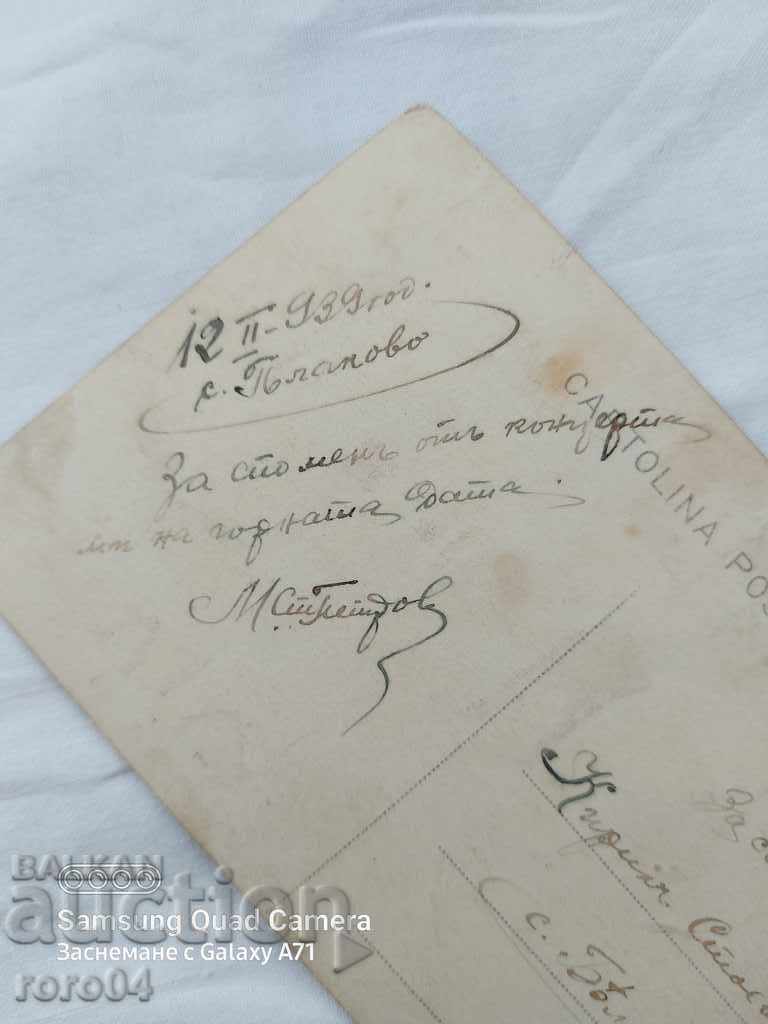 12 II - 939 год.
с. Плаково
За споменъ отъ концерта
ми на горната дата.
CARTOLINA POS
За с
Кирилъ
с. Бѣл
BALKAN
auction
Samsung Quad Camera
Заснемане с Galaxy A71
roro04